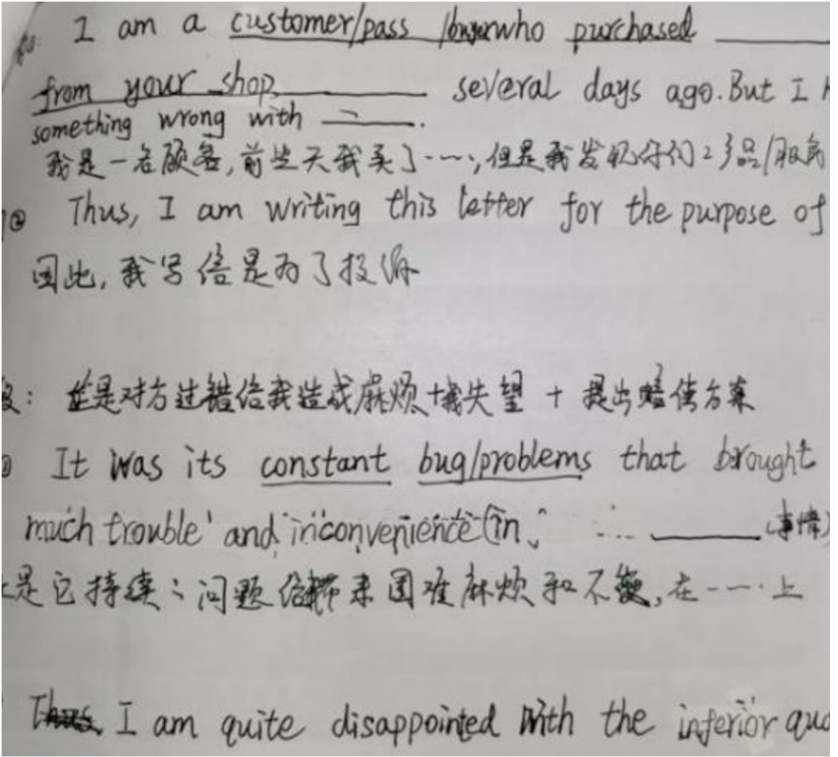 I am a customer/pass /buyer who purchased ____
from your shop ____ several days ago. But I
something wrong with ____.
我是一名顾客,前些天我买了……,但是我发现你们的产品/服务
② Thus, I am writing this letter for the purpose of
因此,我写信是为了投诉
段: 过错给我造成麻烦+我失望 + 提出赔偿方案
It was its constant bug/problems that brought
much trouble and inconvenience (in ... ____ (事情)
是它持续的问题给我带来困难麻烦和不便,在……上
I am quite disappointed with the inferior